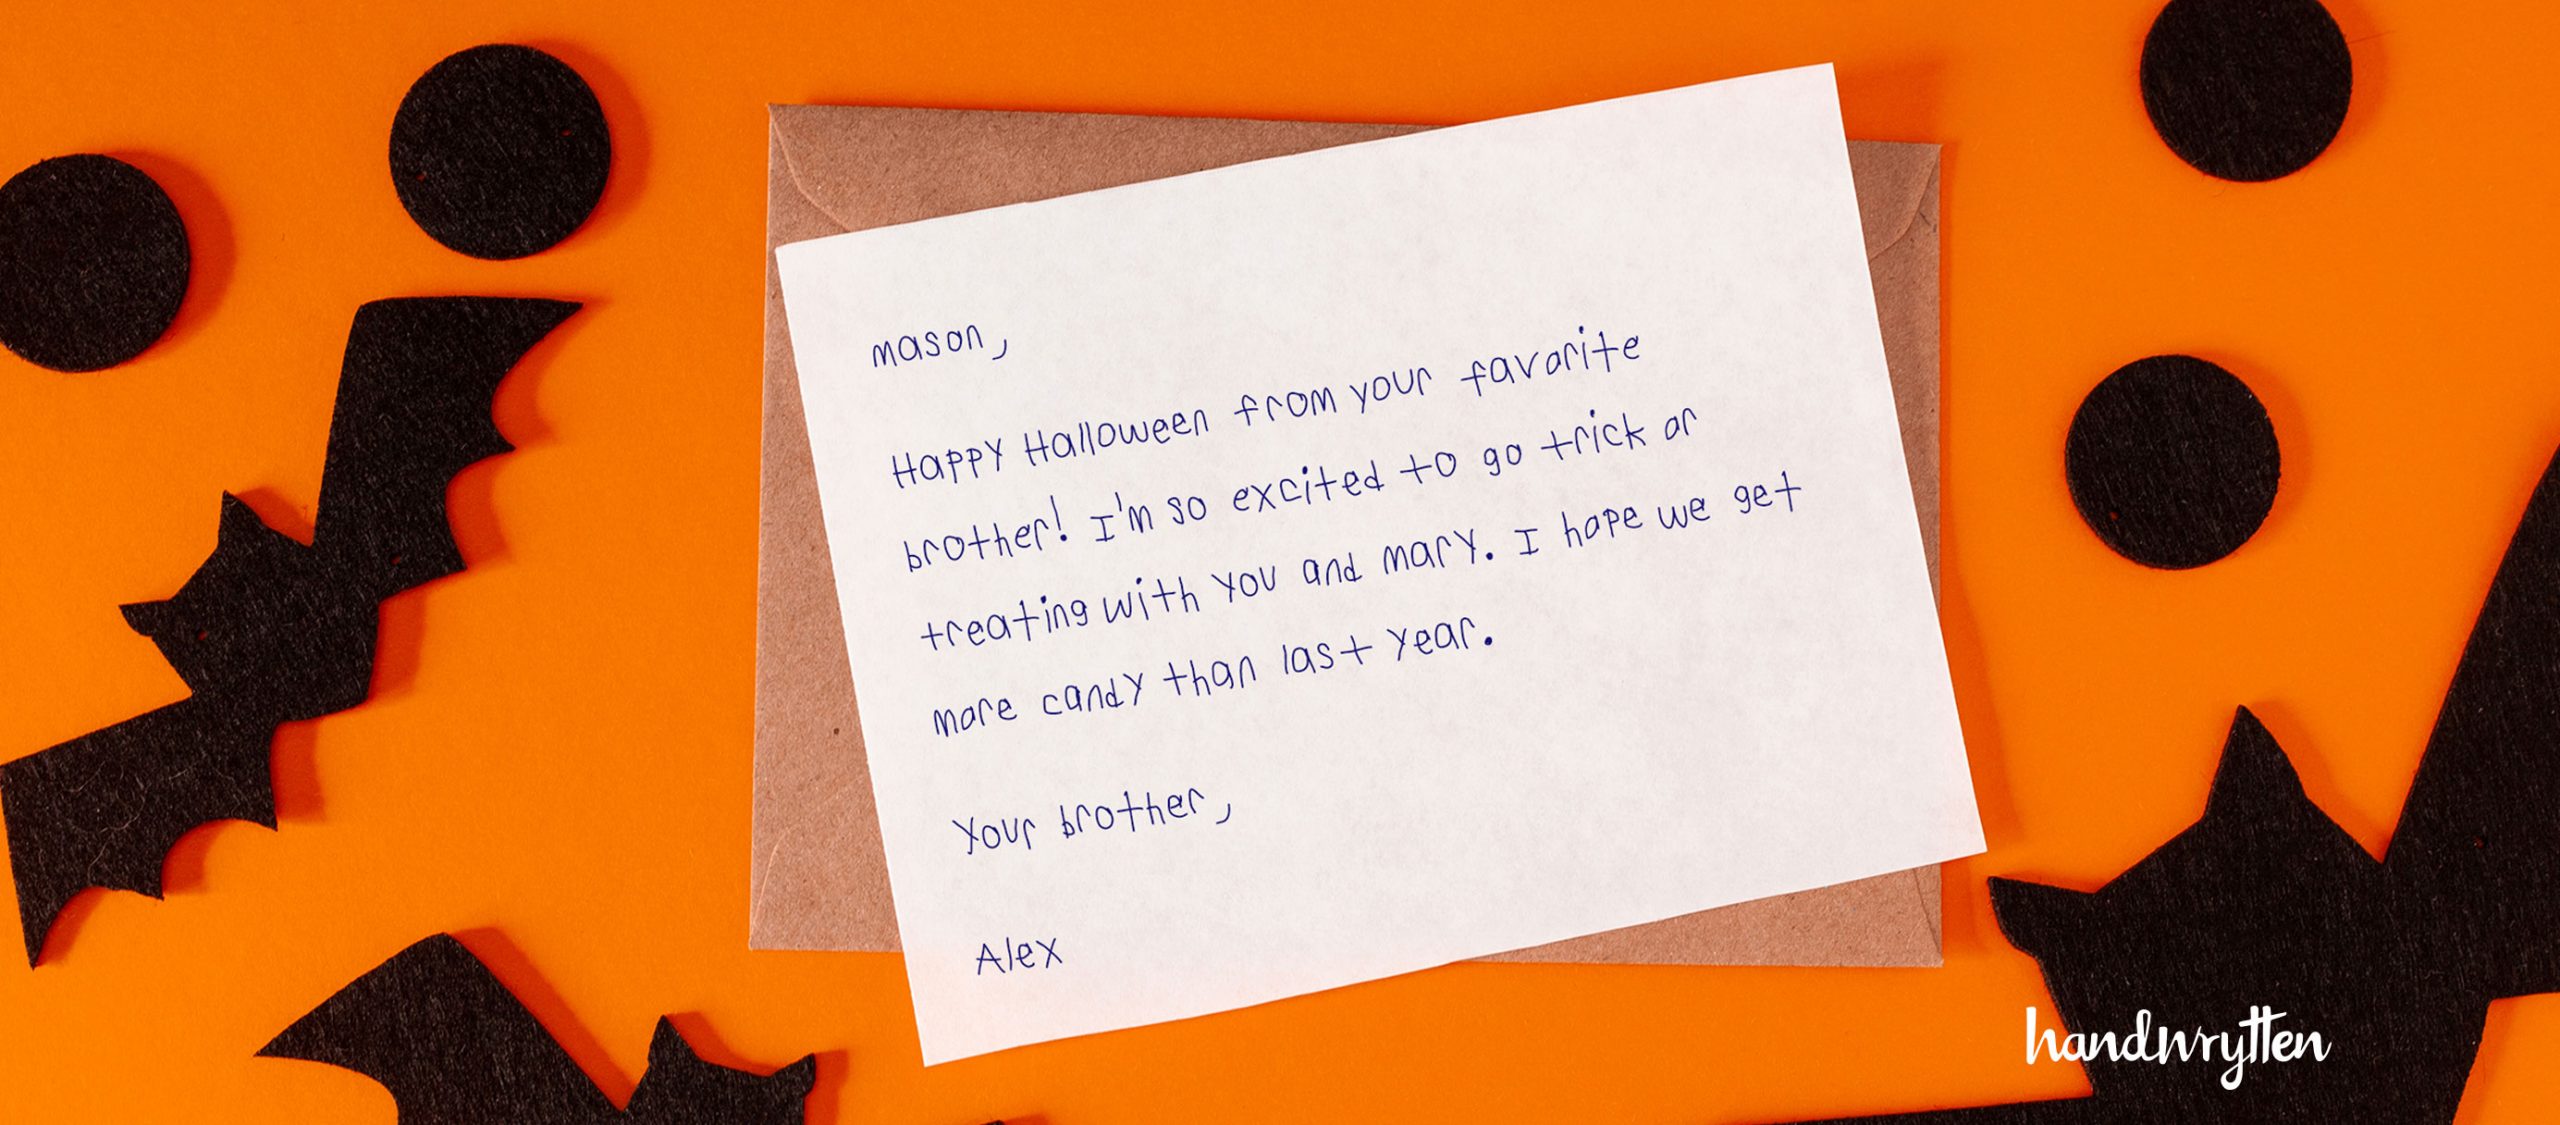 mason,
Happy Halloween from your favorite
brother! I'm so excited to go trick or
treating with you and mary. I hope we get
more candy than last year.
Your brother,
Alex
handwrytten